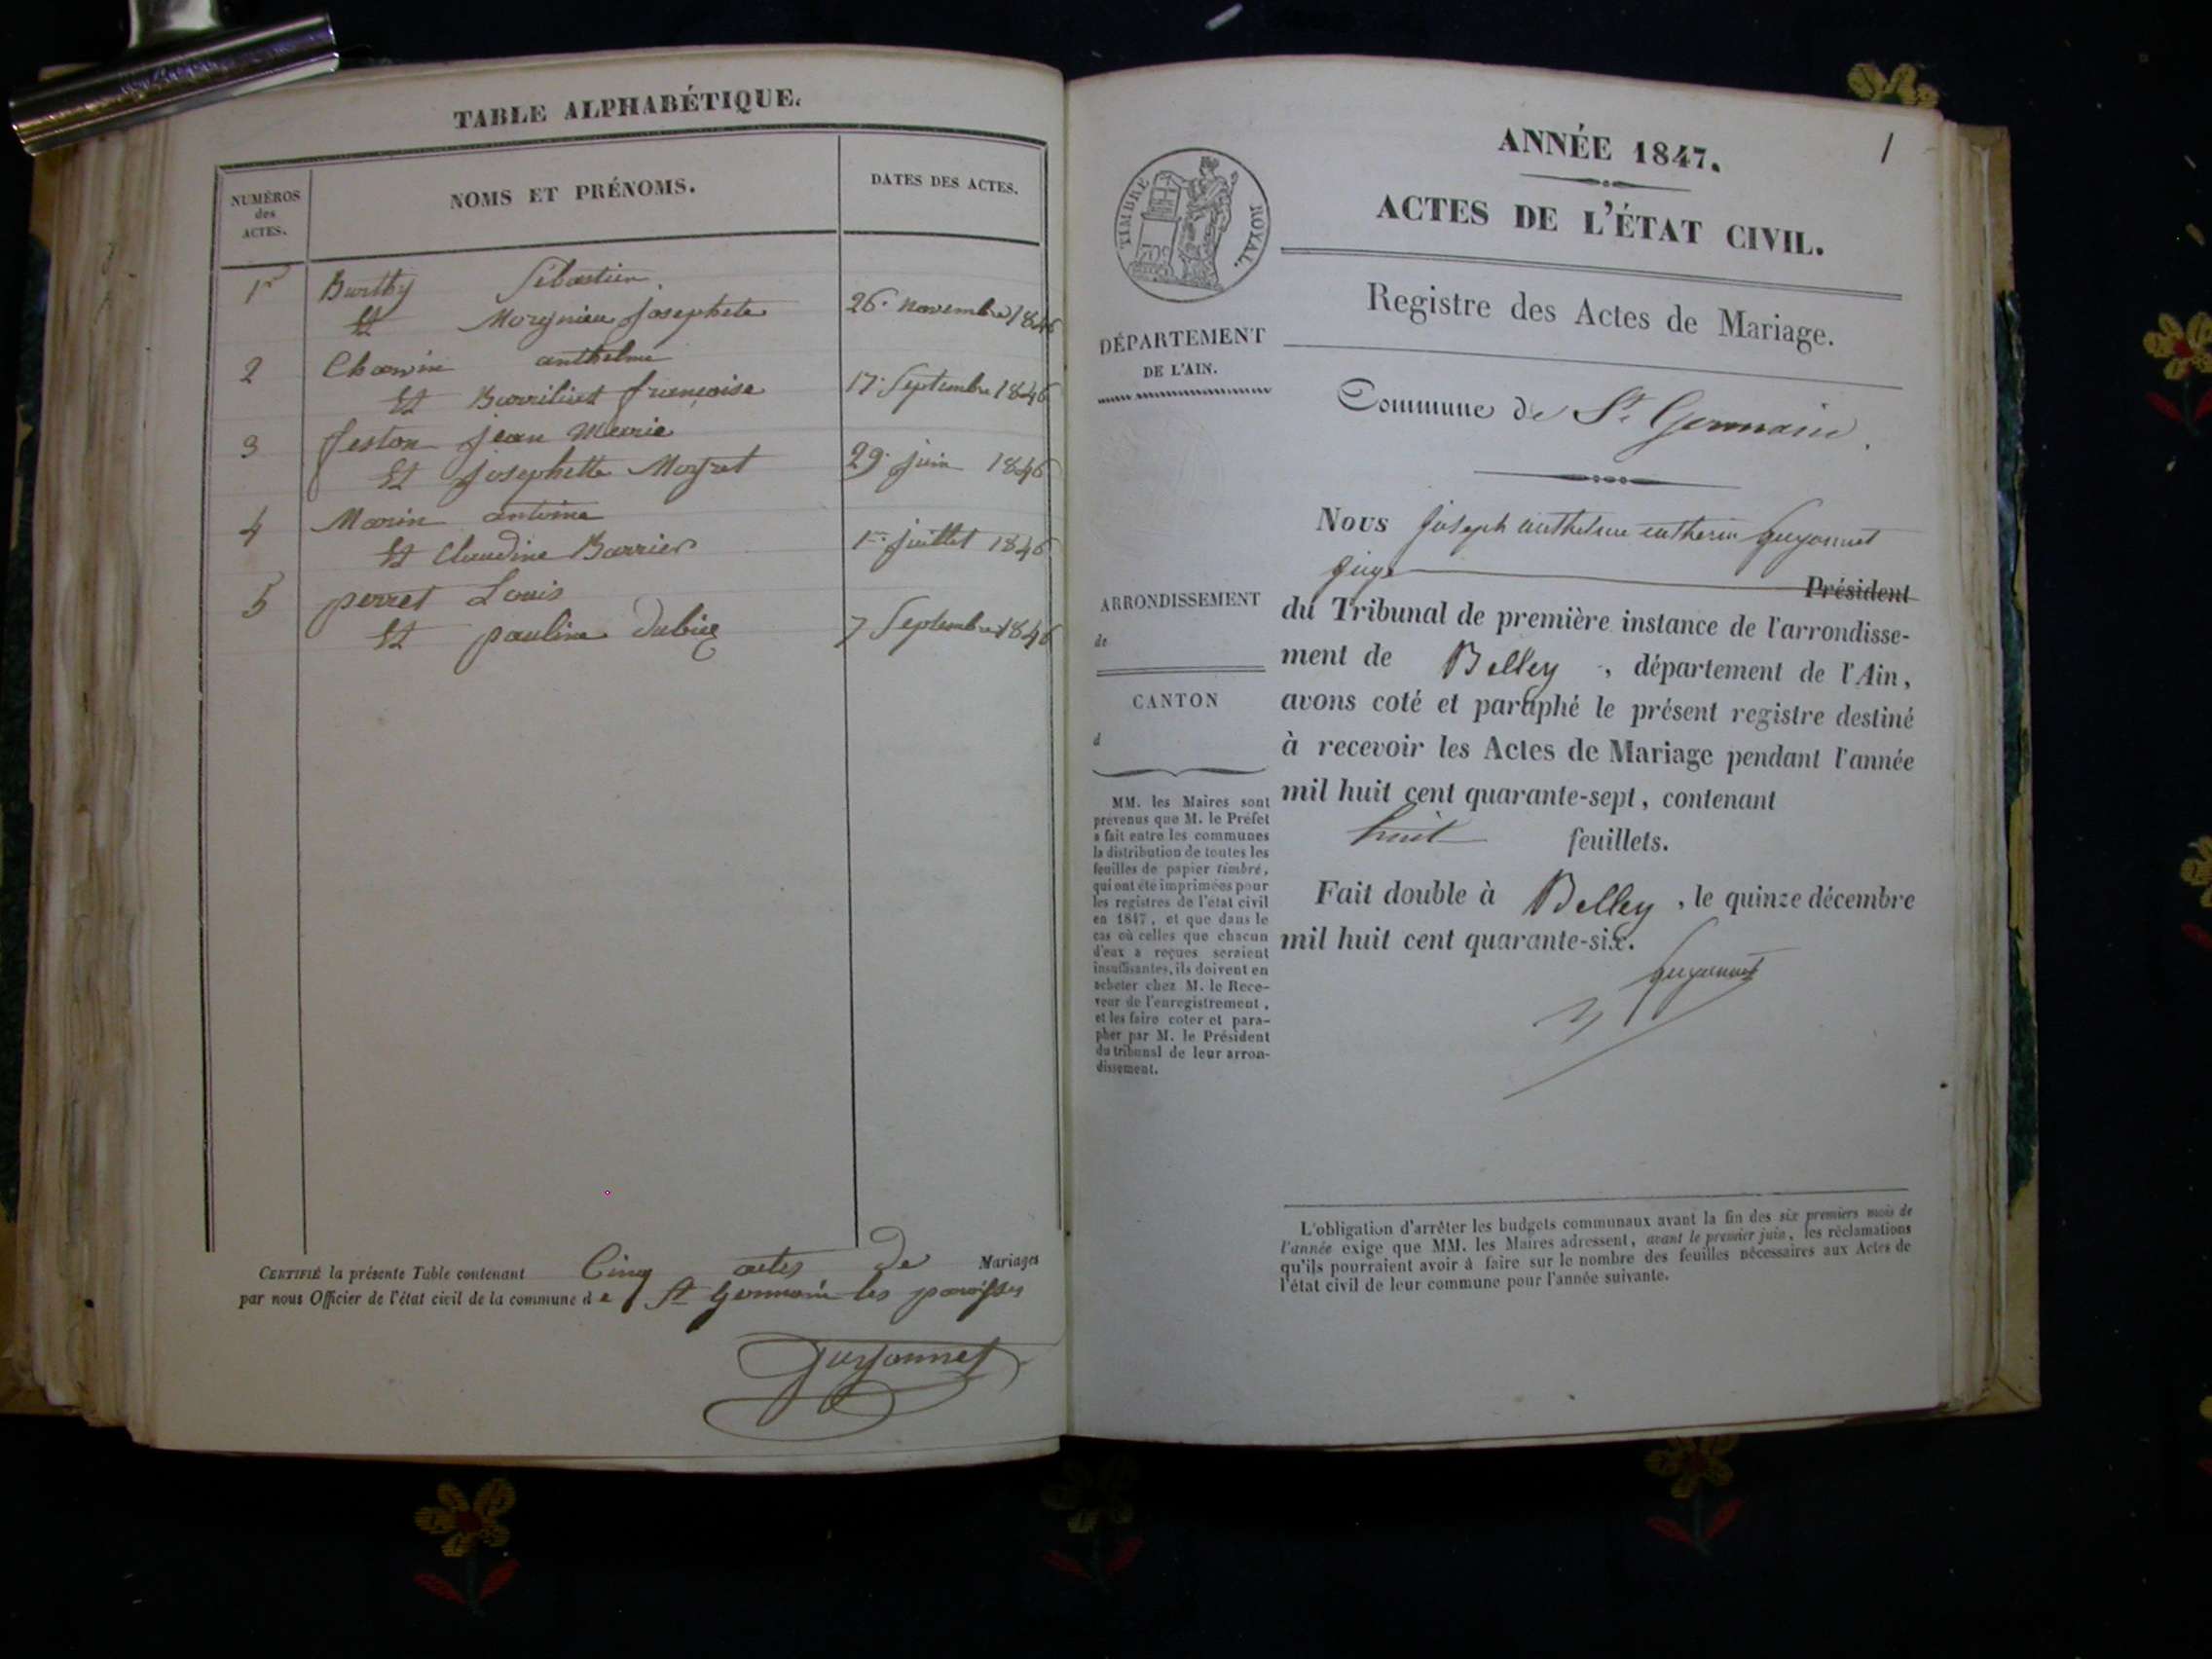 TABLE ALPHABÉTIQUE.
NUMÉROS
des
ACTES.
NOMS ET PRÉNOMS.
DATES DES ACTES.
1er Burthy Sébastien
Et Morgnieu Josephete 26. novembre 1846
2 Charvin anthelme
Et Barriliet françoise 17. Septembre 1846
3 feston jean Marie
Et josephette Moyret 29. juin 1846
4 Marin antoine
Et Claudine Barrier 1er. juillet 1846
5 perret Louis
Et pauline Dubiez 7 Septembre 1846
CERTIFIÉ la présente Table contenant Cinq actes de Mariages
par nous Officier de l'état civil de la commune de St Germain les paroisses
Guyonnet
1
ANNÉE 1847.
ACTES DE L'ÉTAT CIVIL.
Registre des Actes de Mariage.
Commune de St. Germain.
TIMBRE ROYAL.
DÉPARTEMENT
DE L'AIN.
ARRONDISSEMENT
de
CANTON
d
MM. les Maires sont
prévenus que M. le Préfet
a fait entre les communes
la distribution de toutes les
feuilles de papier timbré,
qui ont été imprimées pour
les registres de l'état civil
en 1847, et que dans le
cas où celles que chacun
d'eux a reçues seraient
insuffisantes, ils doivent en
acheter chez M. le Rece-
veur de l'enregistrement,
et les faire coter et para-
pher par M. le Président
du tribunal de leur arron-
dissement.
Nous Joseph anthelme Guyonnet
juge Président
du Tribunal de première instance de l'arrondisse-
ment de Belley, département de l'Ain,
avons coté et paraphé le présent registre destiné
à recevoir les Actes de Mariage pendant l'année
mil huit cent quarante-sept, contenant
huit feuillets.
Fait double à Belley, le quinze décembre
mil huit cent quarante-six.
Guyonnet
L'obligation d'arrêter les budgets communaux avant la fin des six premiers mois de
l'année exige que MM. les Maires adressent, avant le premier juin, les réclamations
qu'ils pourraient avoir à faire sur le nombre des feuilles nécessaires aux Actes de
l'état civil de leur commune pour l'année suivante.